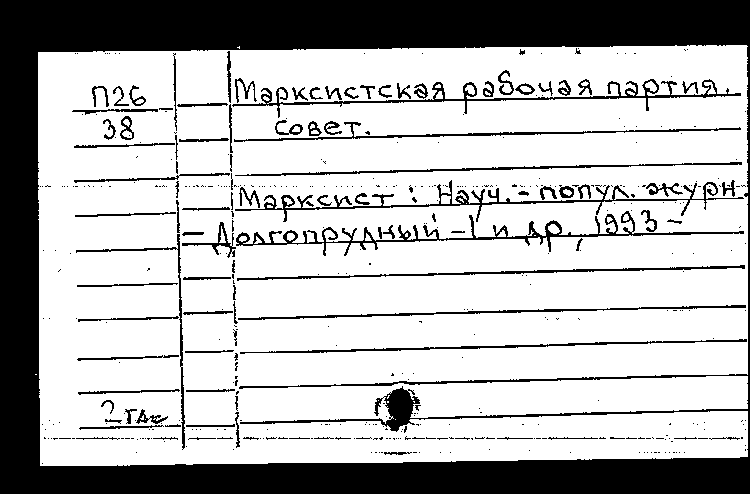 П26
38
Марксистская рабочая партия.
Совет.
Марксист : Науч.-попул. журн.
– Долгопрудный-1 и др., 1993 –